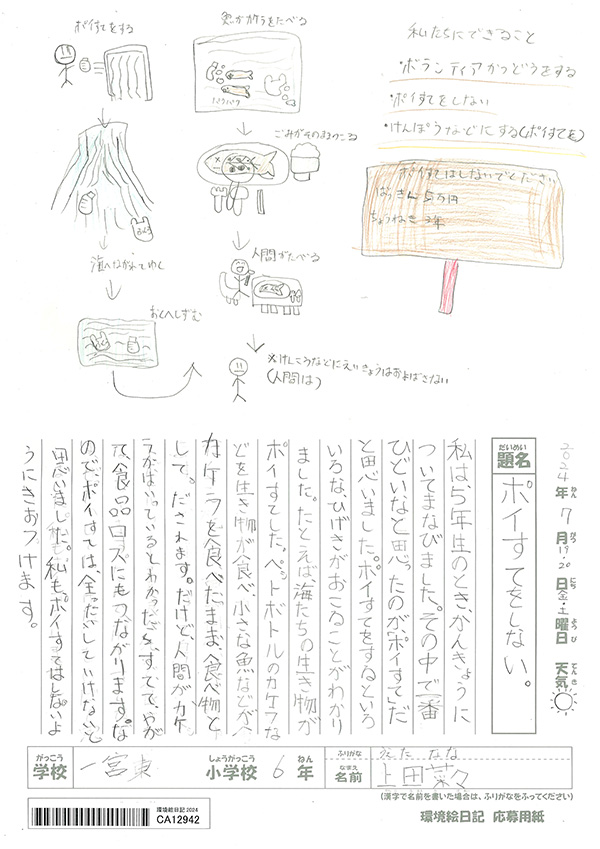 ポイすてをする
海へながれてゆく
おくへしずむ
魚がカケラをたべる
パクパク
ごみがそのままのこる
人間がたべる
×けんこうなどにえいきょうはおよばさない
(人間は)
私たちにできること
・ボランティアかつどうをする
・ポイすてをしない
・けんぽうなどにする(ポイすてを)
ポイすてはしないでください
ばっきん 5万円
2024年7月19・20日金・土曜日 天気
ねん がつ にち ようび てんき
だいめい
題名 ポイすてをしない。
私は、5年生のとき、かんきょうに
ついてまなびました。その中で一番
ひどいなと思ったのが、ポイすてだ
と思いました。ポイすてをするといろ
いろな、ひげきがおこることがわかり
ました。たとえば海たちの生き物が
ポイすてした、ペットボトルのカケラな
どを生き物が食べ、小さな魚などがへ
カケラを食べたまま、食べ物と
して。だされます。だけど、人間がカケ
ラがはいっているとわかったら、すてて、やが
て、食品ロスにもつながります。な
ので、ポイすては、全ったいしていけないと
思いました。私も、ポイすてはしないよ
うにきおつけます。
がっこう しょうがっこう ねん
学校 一宮東 小学校 6年
ふりがな うえた なな
なまえ
名前 上田菜々
(漢字で名前を書いた場合は、ふりがなをふってください)
環境絵日記2024
CA12942
環境絵日記 応募用紙